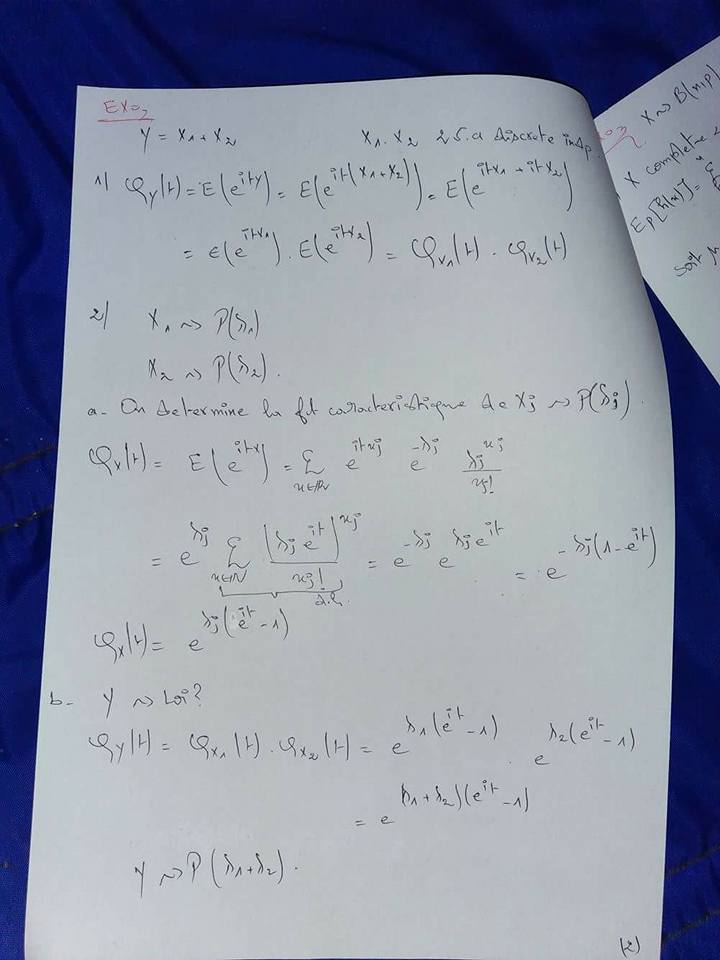 EXO2
Y = X1 + X2 X1, X2 2 v.a discrete indp.
1) φY(t) = E(e^{itY}) = E(e^{it(X1+X2)}) = E(e^{itX1 + itX2})
= E(e^{itX1}) . E(e^{itX2}) = φX1(t) . φX2(t)
2) X1 ~> P(λ1)
X2 ~> P(λ2).
a- On determine la ft caracteristique de Xj ~> P(λj).
φX(t) = E(e^{itX}) = Σ_{x∈IN} e^{itxj} e^{-λj} λj^{xj}/xj!
= e^{λj} Σ_{x∈IN} (λj e^{it})^{xj}/xj! = e^{-λj} e^{λj e^{it}} = e^{-λj(1-e^{it})}
φX(t) = e^{λj(e^{it}-1)}
b- Y ~> Loi?
φY(t) = φX1(t) . φX2(t) = e^{λ1(e^{it}-1)} . e^{λ2(e^{it}-1)}
= e^{(λ1+λ2)(e^{it}-1)}
Y ~> P(λ1+λ2).
(2)
X ~> B(n,p)
X complete
Ep[h(x)] =
soit